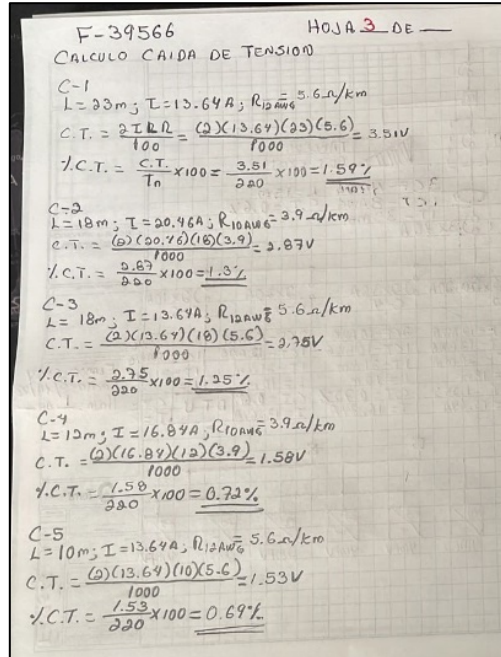 F-39566 HOJA 3 DE
CALCULO CAIDA DE TENSION
C-1
L= 23m; I=13.64A; R12AWG=5.6Ω/km
C.T. = 2ILR/100 = (2)(13.64)(23)(5.6)/1000 = 3.51V
%C.T. = C.T./Tn x100 = 3.51/220 x100 = 1.59%
C-2
L= 18m; I=20.46A; R10AWG=3.9Ω/km
C.T. = (2)(20.46)(18)(3.9)/1000 = 2.87V
%C.T. = 2.87/220 x100 = 1.3%
C-3
L= 18m; I=13.64A; R12AWG=5.6Ω/km
C.T. = (2)(13.64)(18)(5.6)/1000 = 2.75V
%C.T. = 2.75/220 x100 = 1.25%
C-4
L=12m; I=16.84A; R10AWG=3.9Ω/km
C.T. = (2)(16.84)(12)(3.9)/1000 = 1.58V
%C.T. = 1.58/220 x100 = 0.72%
C-5
L=10m; I=13.64A; R12AWG=5.6Ω/km
C.T. = (2)(13.64)(10)(5.6)/1000 = 1.53V
%C.T. = 1.53/220 x100 = 0.69%